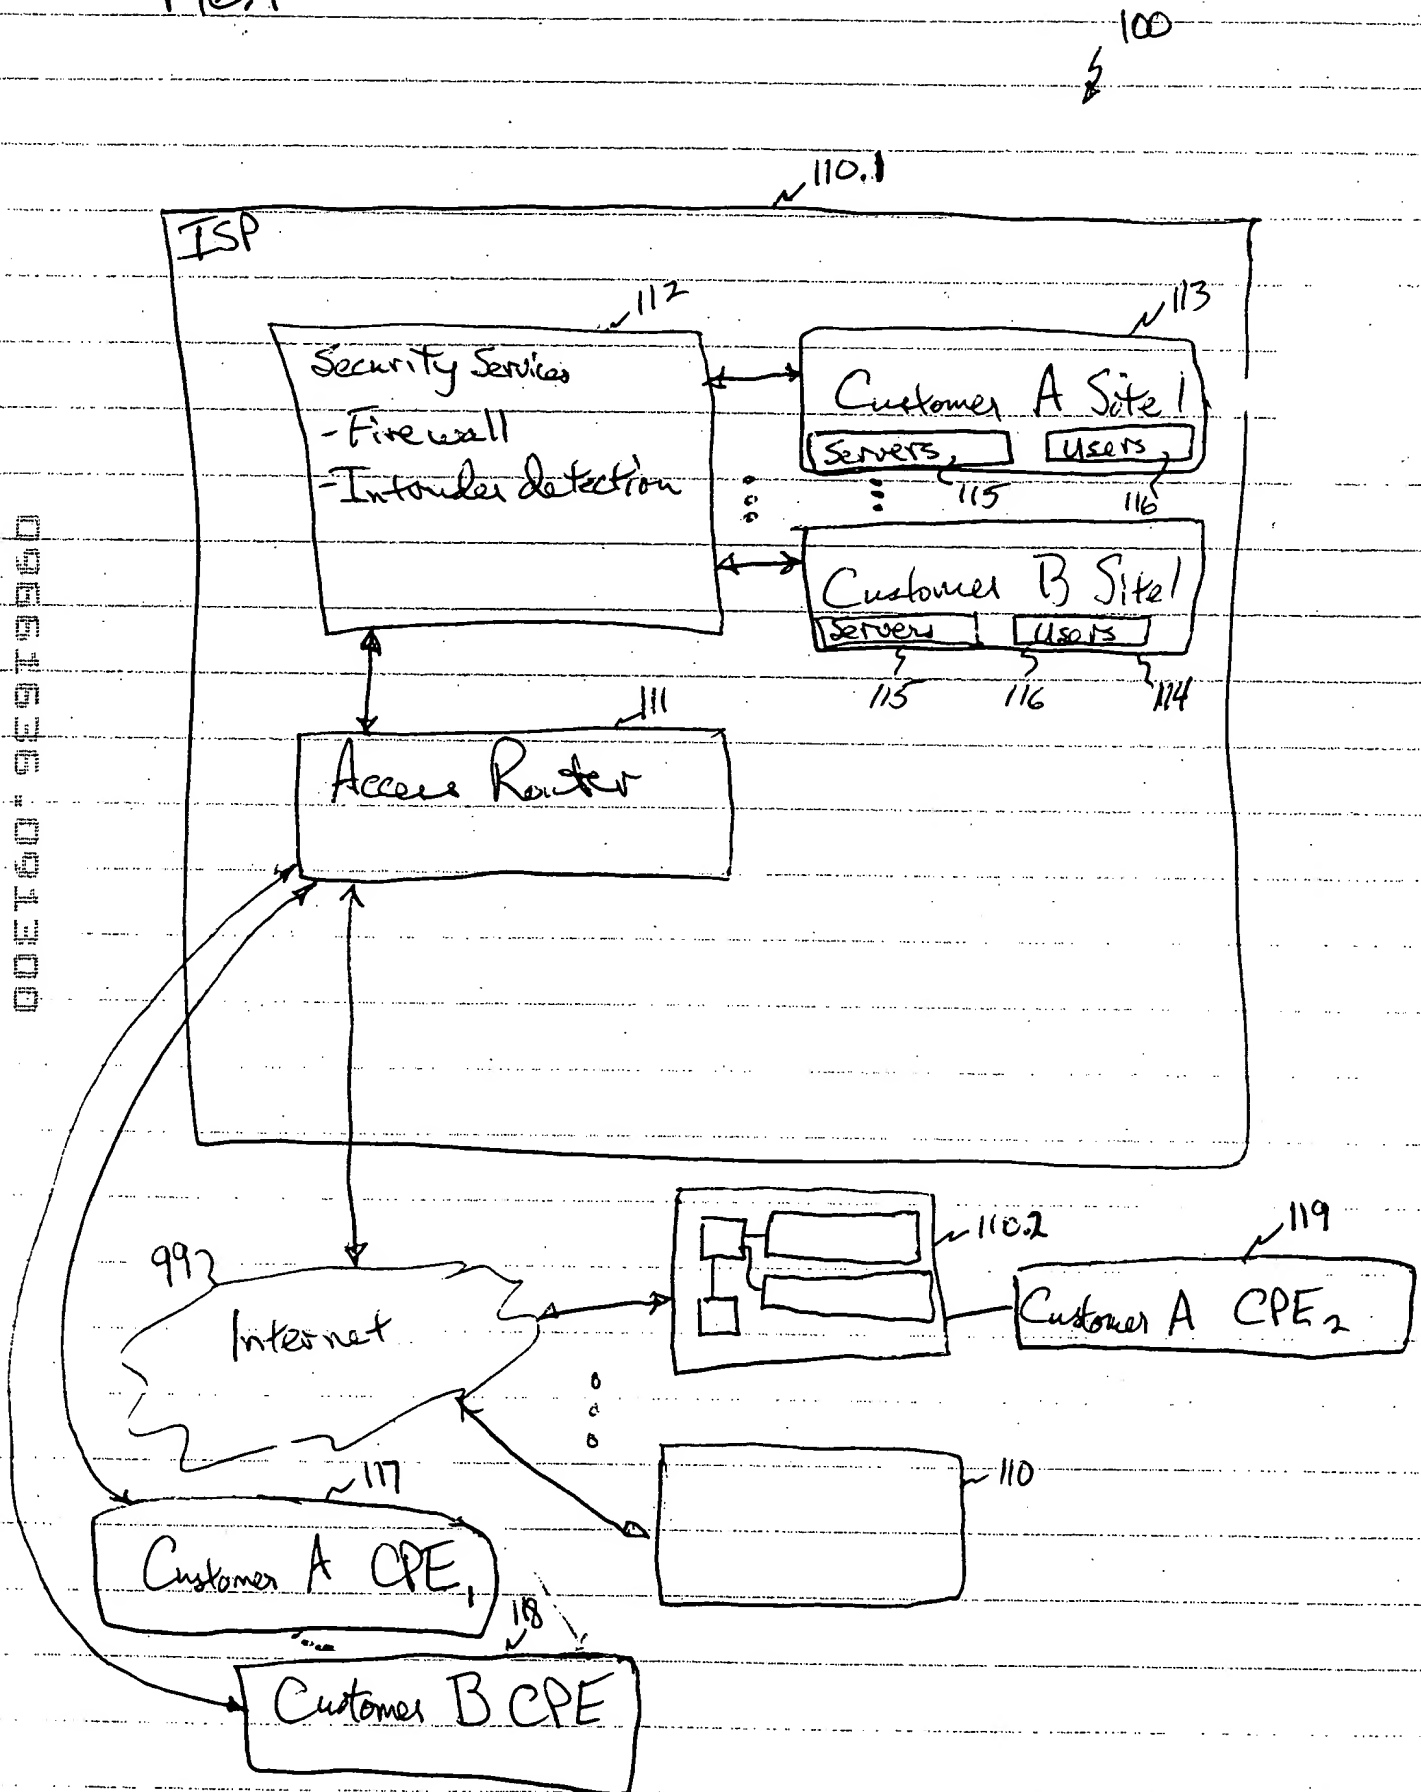 100
110.1
ISP
112
113
Security Services
- Firewall
- Intruder detection
Customer A Site 1
Servers
Users
115
116
Customer B Site 1
Servers
Users
115
116
114
111
Access Router
09661636-091300
99
Internet
110.2
119
Customer A CPE2
110
117
Customer A CPE1
118
Customer B CPE